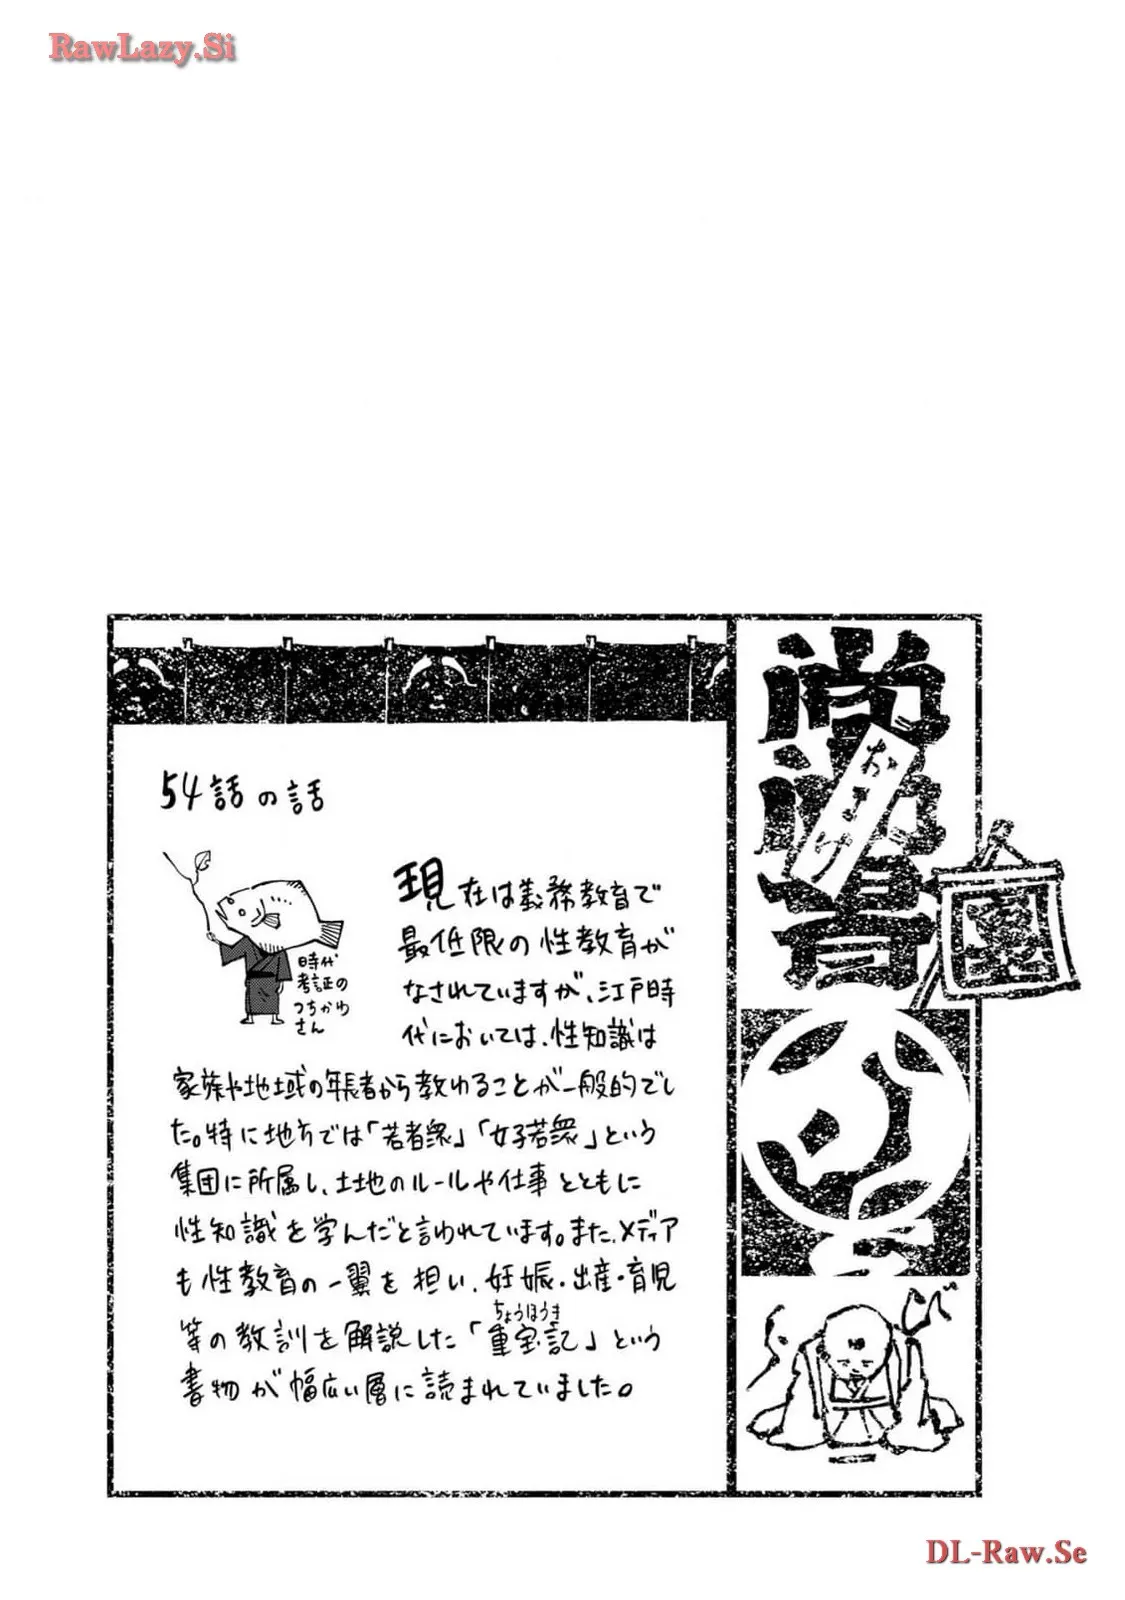 RawLazy.Si
54話の話
時代
考証の
つちかゆ
さん
現在は義務教育で
最低限の性教育が
なされていますが、江戸時
代においては、性知識は
家族や地域の年長者から教わることが一般的でし
た。特に地方では「若者衆」「女子若衆」という
集団に所属し、土地のルールや仕事とともに
性知識を学んだと言われています。また、メディア
も性教育の一翼を担い、妊娠・出産・育児
等の教訓を解説した「重宝記」という
ちょうほうき
書物が幅広い層に読まれていました。
おまけ
DL-Raw.Se